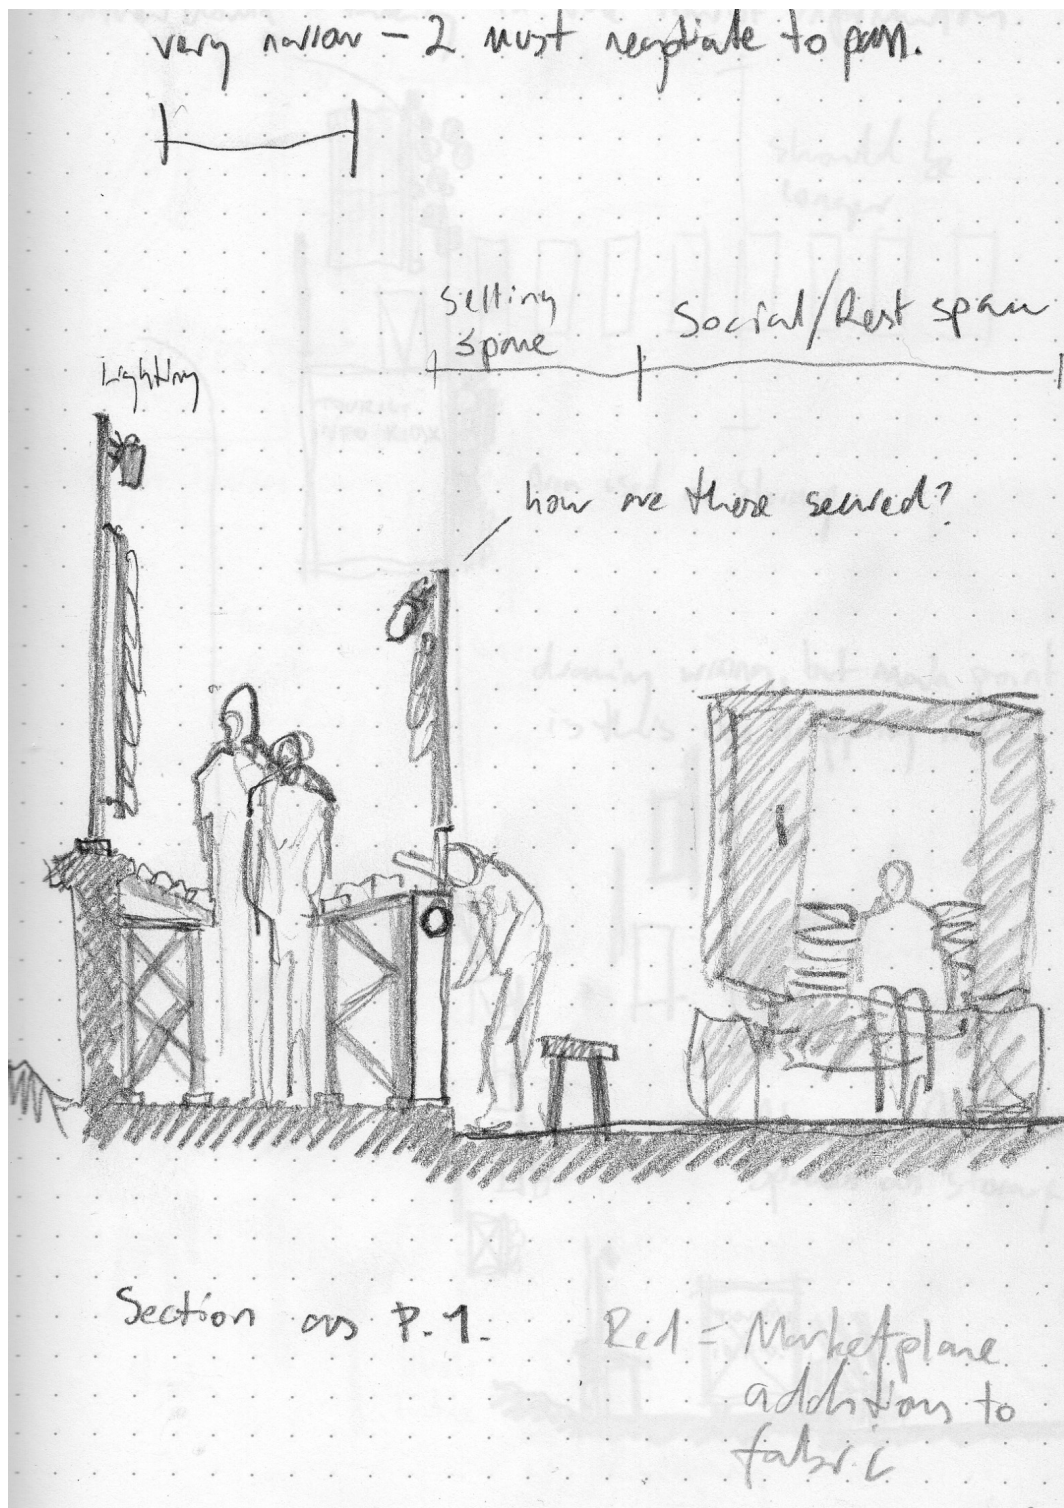 very narrow – 2 must negotiate to pass.
Selling
Space
Social/Rest space
Lighting
how are these secured?
Section as P.1.
Red = Marketplace
additions to
fabric